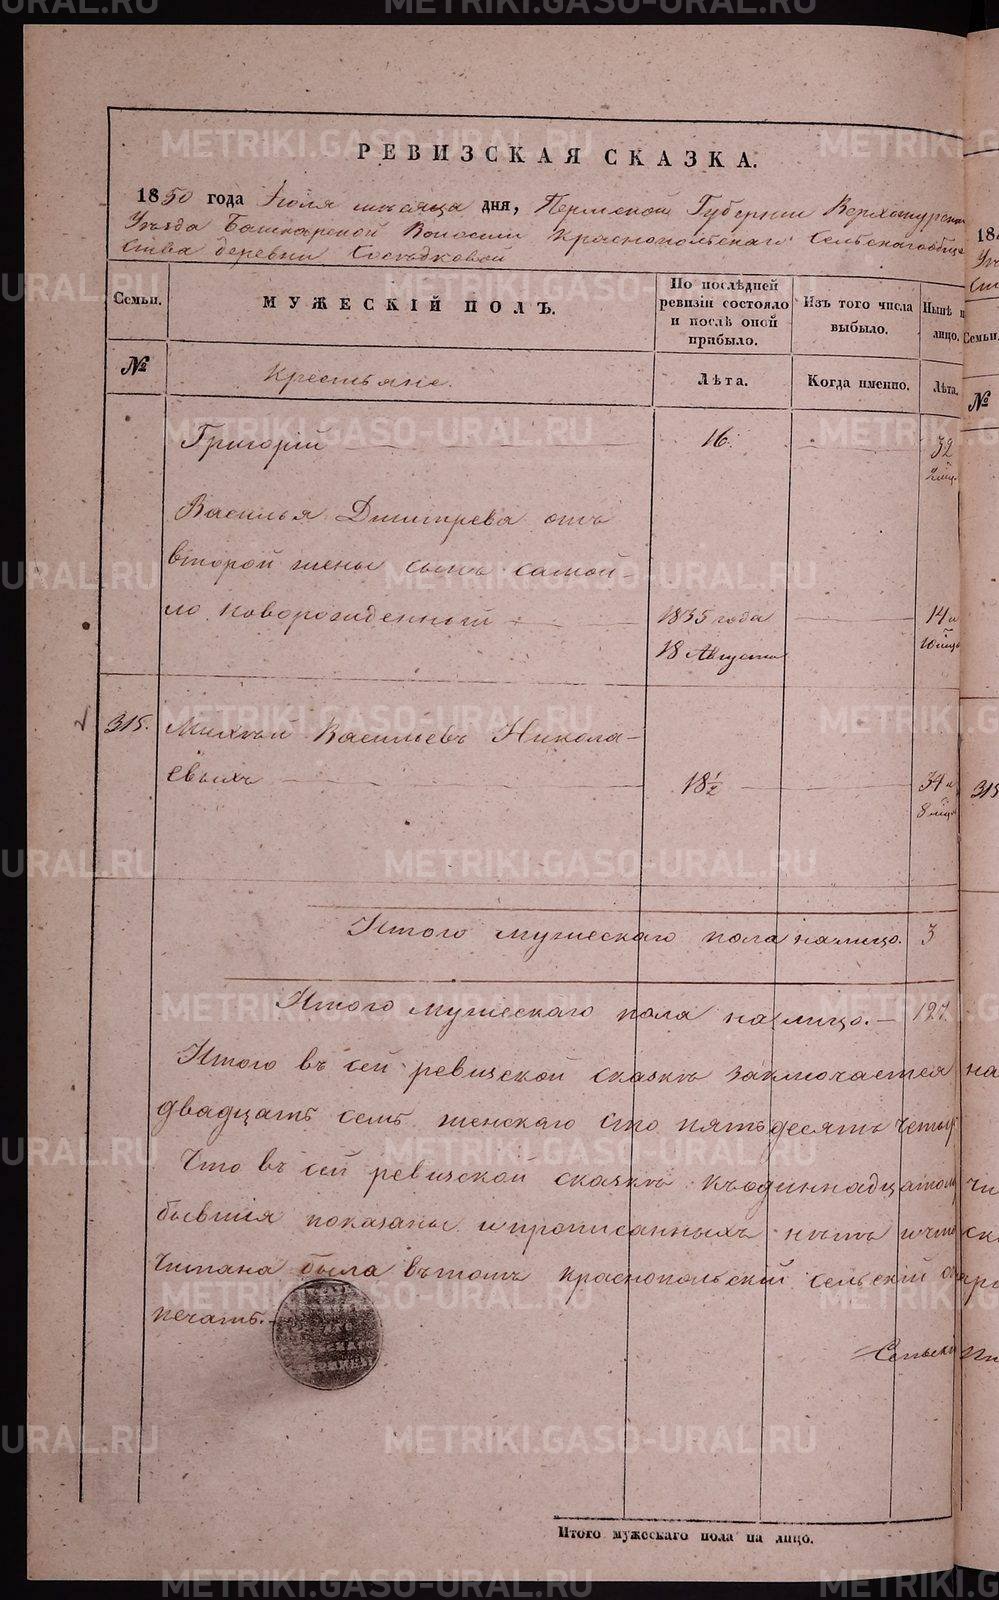 РЕВИЗСКАЯ СКАЗКА.
1850 года Іюля мѣсяца дня, Пермской Губерніи Верхотурска
Уѣзда Башкарской Волости Краснопольскаго Сельскаго обще
ства деревни Сосѣдковой
Семьи. МУЖЕСКІЙ ПОЛЪ. По послѣдней ревизіи состояло и послѣ оной прибыло. Изъ того числа выбыло. Нынѣ н лицо.
№ Крестьяне. Лѣта. Когда именно. Лѣта.
Григорій 16. 32
2 мѣц
Василья Дмитрева отъ
второй жены сынъ Самой-
ло новорожденный 1835 года 14 и
18 Августа 10 мѣц
315. Михѣй Васильевъ Никола-
евыхъ 18 1/2 34 и
8 мѣц
Итого мужескаго пола на лицо. 3
Итого мужескаго пола на лицо. — 127
Итого въ сей ревизской сказкѣ заключается на
двадцать семь женскаго сто пятьдесять четыр
Что въ сей ревизской сказкѣ къодиннадцатому чи
бывшія показаны и прописанныхъ нѣтъ и что ск
читана была въ томъ Краснопольскій сельскій
печать.
Сельскі
Итого мужескаго пола на лицо.
184
Уѣ
Ст
Семьи.
№
315
METRIKI.GASO-URAL.RU